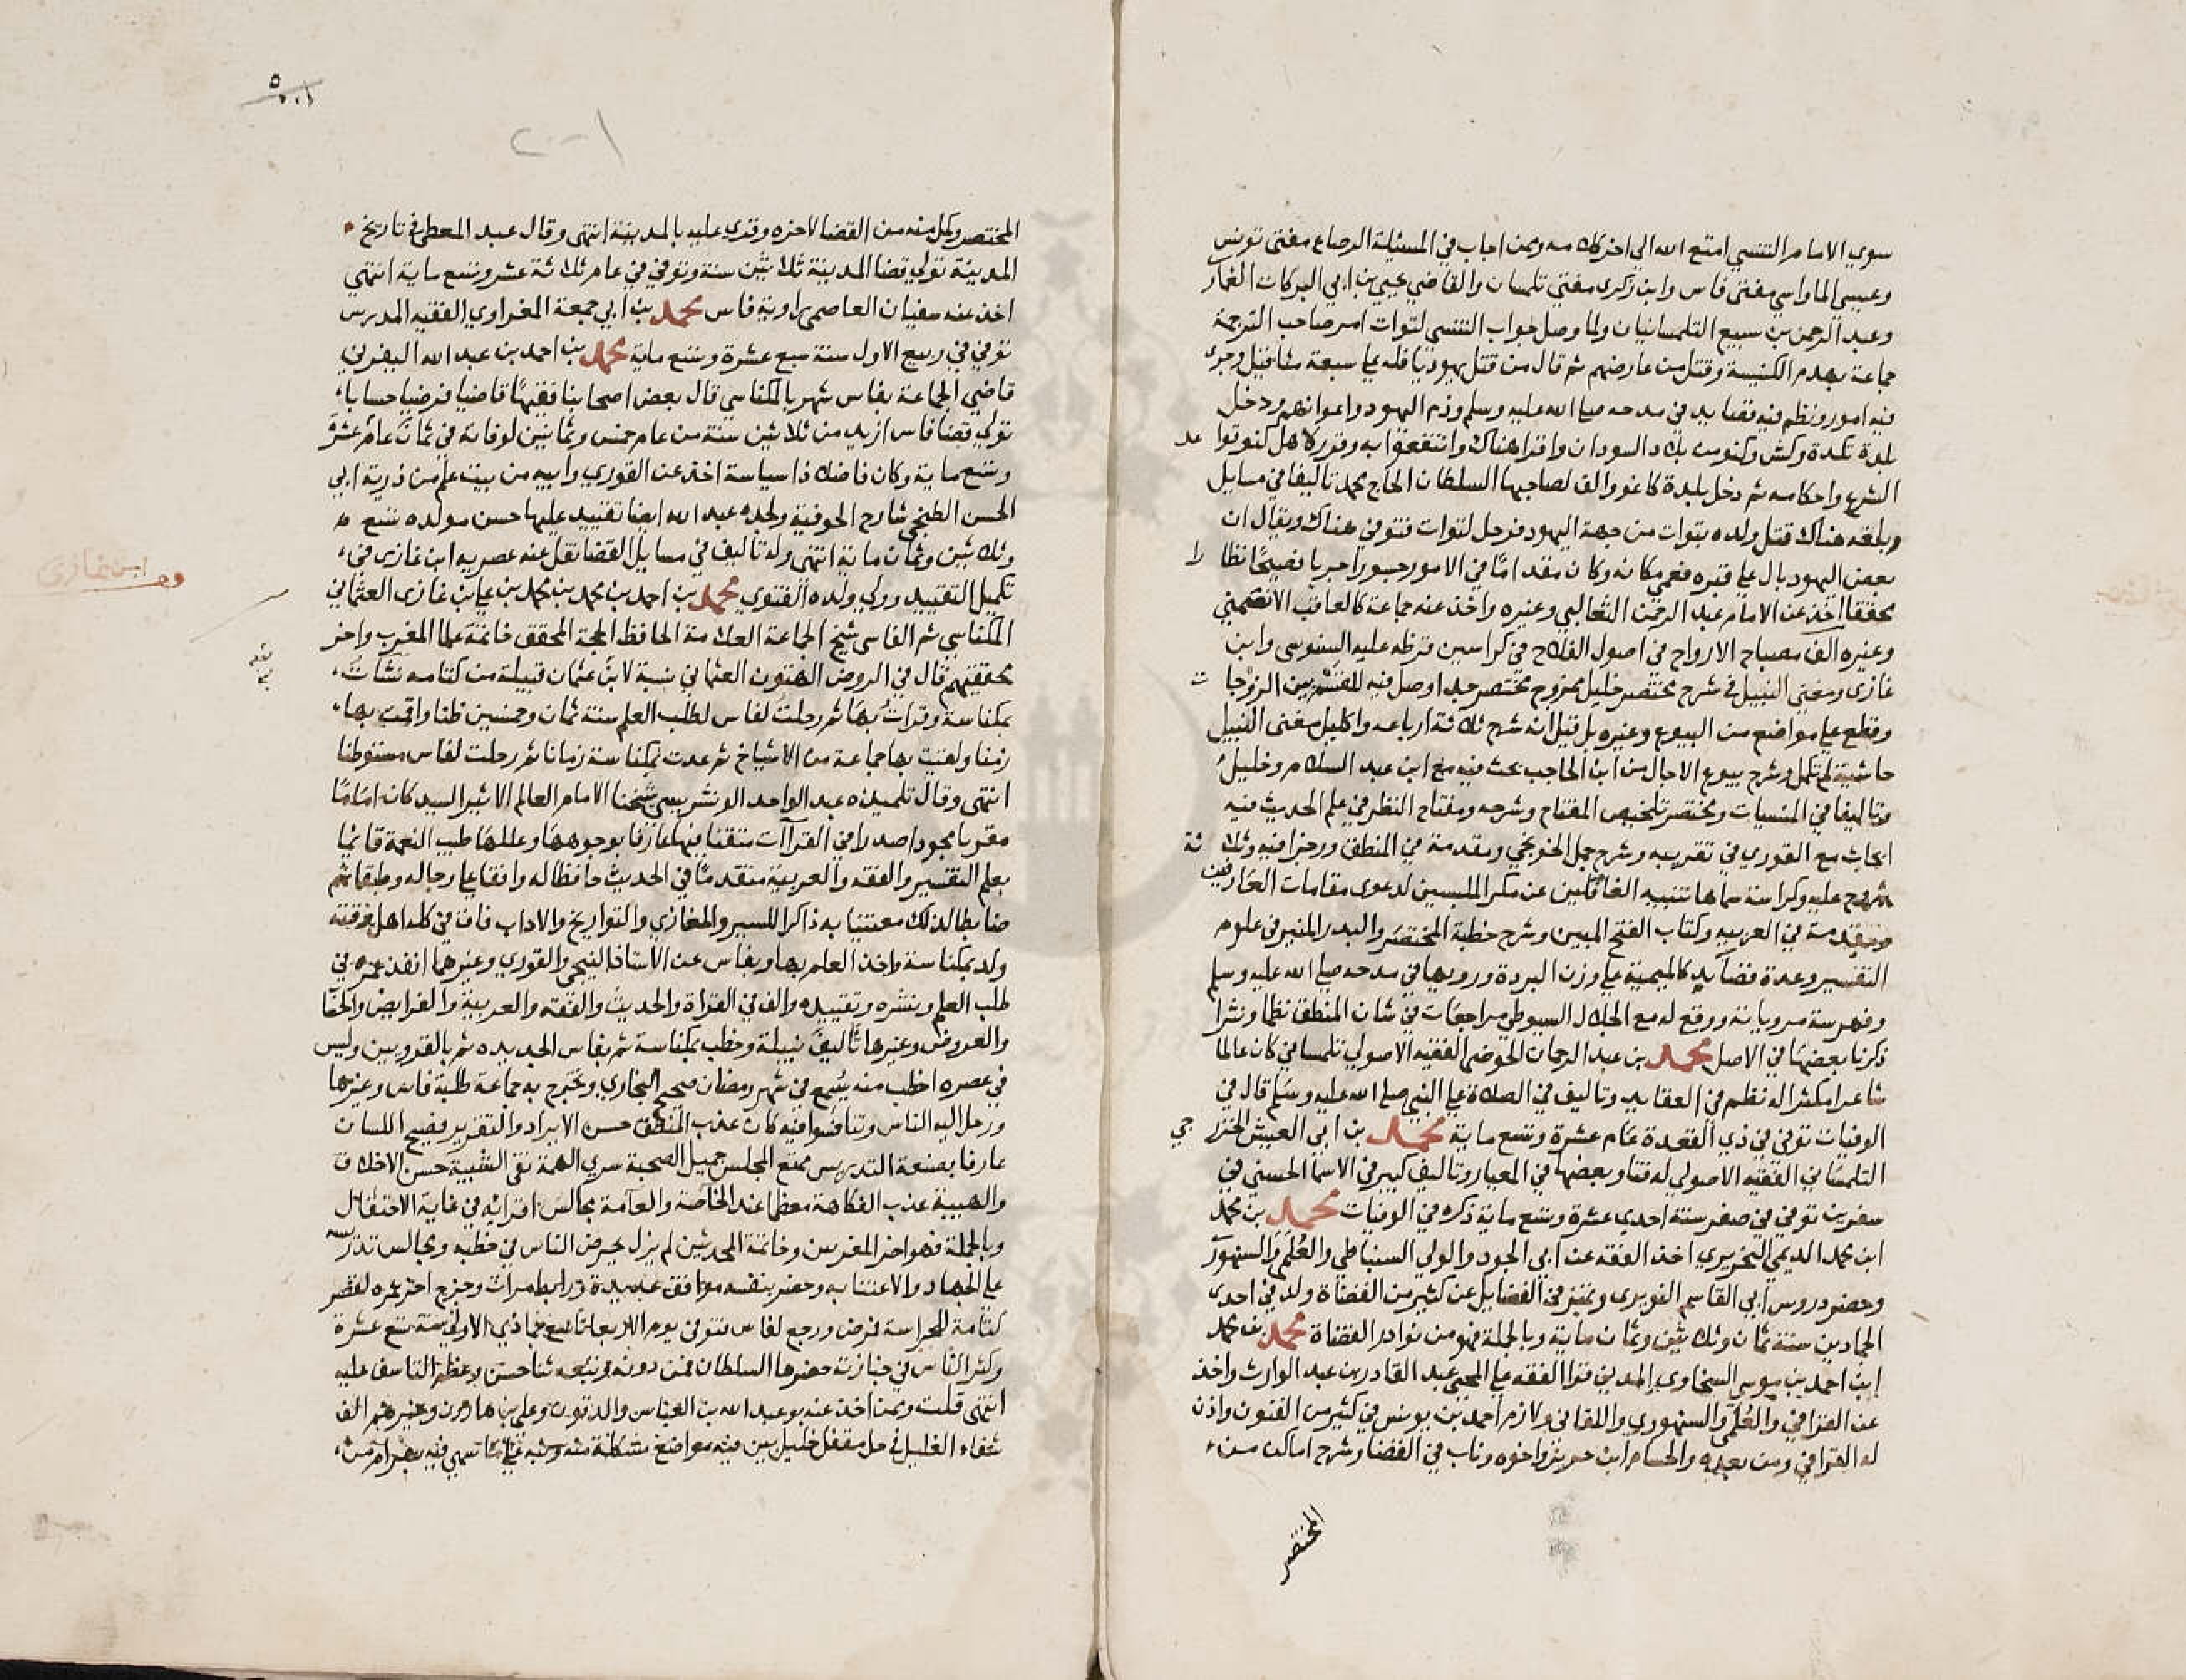 سوي الامام التنسي امتع الله الي اخر كلامه وممن اجاب في المسئلة الرصاع مفتي تونس
وعيسي الماواسي مفتي فاس وابن زكرى مفتي تلمسان والقاضي يحيي بن ابي البركات الغمار
وعبد الرحمن بن سبيع التلمسانيان ولما وصل جواب التنسي لتوات امر صاحب الترجمة
جماعة بهدم الكنيسة وقتل من عارضهم ثم قال من قتل يهوديا فله علي سبعة مثاقيل وجرى
فيه امور ونظم فيه قصايد في مدحه صلي الله عليه وسلم وذم اليهود واعوانهم ودخل
بلدة تكدة وكش وكنو من بلاد السودان واقرا هناك وانتفعوا به وقرر لاهل كنو قواعد
الشرع واحكامه ثم دخل بلدة كاغو والف لصاحبها السلطان الحاج محمد تاليفا في مسايل
وبلغه هناك قتل ولده بتوات من جهة اليهود فرحل لتوات فتوفي هناك ويقال ان
بعض اليهود بال علي قبره فعمي مكانه وكان مقداما في الامور جسورا جريا فصيحا نظارا
محققا اخذ عن الامام عبد الرحمن الثعالبي وغيره واخذ عنه جماعة كالعاقب الانصمني
وغيره الف مصباح الارواح في اصول الفلاح في كراسين قرظه عليه السنوسي وابن
غازي ومغني النبيل في شرح مختصر خليل ممزوج مختصر جدا وصل فيه للقسم بين الزوجات
وقطع علي مواضع من البيوع وغيره بل قيل انه شرح ثلاثة ارباعه واكليل مغني النبيل
حاشية لم تكمل وشرح بيوع الاجال من ابن الحاجب بحث فيه مع ابن عبد السلام وخليل
وتاليفا في المنسيات ومختصر تلخيص المفتاح وشرحه ومفتاح النظر في علم الحديث فيه
ابحاث مع النووي في تقريبه وشرح جمل الخونجي ومقدمة في المنطق ورجزا فيه وثلاثة
شروح عليه وكراسة سماها تنبيه الغافلين عن مكر الملبسين لدعوى مقامات العارفين
ومقدمة في العربيه وكتاب الفتح المبين وشرح خطبة المختصر والبدر المنير في علوم
التفسير وعدة قصايد كالميمية علي وزن البردة ورويها في مدحه صلي الله عليه وسلم
وفهرسة مروياته ووقع له مع الجلال السيوطي مراجعات في شان المنطق نظما ونثرا
ذكرنا بعضها في الاصل محمد بن عبد الرحمان الحوضي الفقيه الاصولي تلمساني كان عالما
شاعرا مكثرا له نظم في العقايد وتاليف في الصلاة علي النبي صلي الله عليه وسلم قال في
الوفيات توفي في ذي القعدة عام عشرة وتسع ماية محمد بن ابي العيش الخزرجي
التلمساني الفقيه الاصولي له فتاو بعضها في المعيار وتاليف كبير في الاسما الحسني في
سفرين توفي في صفر سنة احدي عشرة وتسع ماية ذكره في الوفيات محمد بن محمد
ابن محمد الديمي التحريري اخذ الفقه عن ابي الجود والولي السنباطي والعلمي والسنهوري
وحضر دروس ابي القاسم النويري وتميز في الفضايل عن كثير من القضاة ولد في احدى
الجمادين سنة ثمان وثلاثين وثمان ماية وبالجملة فهو من نوادر القضاة محمد بن محمد
ابن احمد بن موسي السخاوي المدني قرا الفقه علي المحيي عبد القادر بن عبد الوارث واخذ
عن القرافي والعلمي والسنهوري واللقاني ولازم احمد بن يونس في كثير من الفنون واذن
له القرافي ومن بعده والحسام ابن حريز واخوه وناب في القضا وشرح اماكن من
المختصر
المختصر وكمل منه من القضا لاخره وقري عليه بالمدينة انتهي وقال عبد المعطي في تاريخ
المدينة تولي قضا المدينة ثلاثين سنة وتوفي في عام ثلاثة عشر وتسع ماية انتهي
اخذ عنه سفيان العاصمي راوية فاس محمد بن ابي جمعة المغراوي الفقيه المدرس
توفي في ربيع الاول سنة سبع عشرة وتسع ماية محمد بن احمد بن عبد الله اليفرني
قاضي الجماعة بفاس شهر بالمكناسي قال بعض اصحابنا فقيها قاضيا فرضيا حسابا
تولي قضا فاس ازيد من ثلاثين سنة من عام خمس وثمانين لوفاته في ثمان عام عشر
وتسع ماية وكان فاضلا ذا سياسة اخذ عن القوري وابيه من بيت علم من ذرية ابي
الحسن الطنجي شارح الحوفية ولجده عبد الله ايضا تقييد عليها حسن مولده تسع
وثلاثين وثمان ماية انتهي وله تاليف في مسايل القضا نقل عنه عصريه ابن غازي في
تكميل التقييد وولي ولده الفتوي محمد بن احمد بن محمد بن محمد بن علي بن غازى العثماني
المكناسي ثم الفاسي شيخ الجماعة العلامة الحافظ الحجة المحقق خاتمة علما المغرب واخر
محققيهم قال في الروض الهتون العثماني نسبة لابن عثمان قبيلة من كتامه نشات
بمكناسة وقرات بها ثم رحلت لفاس لطلب العلم سنة ثمان وخمسين ظنا واقمت بها
زمنا ولقيت بها جماعة من الاشياخ ثم عدت لمكناسة زمانا ثم رحلت لفاس مستوطنا
انتهى وقال تلميذه عبد الواحد الونشريسي شيخنا الامام العالم الاثير السيد كان اماما
مقريا مجودا صدرا في القراآت متقنا فيها عارفا بوجوهها وعللها طيب النعمة قايما
بعلم التفسير والفقه والعربية متقدما في الحديث حافظا له واقفا علي رجاله وطبقاتهم
ضابطا لذلك معتنيا به ذاكرا للسير والمغازي والتواريخ والاداب فاق في كله اهل وقته
ولد بمكناسة واخذ العلم بها وبفاس عن الاستاذ النيجي والقوري وغيرهما انفذ عمره في
طلب العلم ونشره وتقييده والف في القراة والحديث والفقه والعربية والفرايض والحسا
والعروض وغيرها تاليف نبيلة وخطب بمكناسة ثم بفاس الجديده ثم بالقرويين وليس
في عصره اخطب منه يسمع في شهر رمضان صحيح البخاري وتخرج به جماعة طلبة فاس وغيرها
ورحل اليه الناس وتنافسوا فيه كان عذب المنطق حسن الايراد والتقرير فصيح اللسان
عارفا بصنعة التدريس ممتع المجلس جميل الصحبة سري الهمة نقي الشيبة حسن الاخلاق
والهيبة عذب الفكاهة معظما عند الخاصة والعامة مجالس اقرائه في غاية الاحتفال
وبالجملة فهو اخر المقرين وخاتمة المحدثين لم يزل يحرض الناس في خطبه ومجالس تدريسه
علي الجهاد والاعتنا به وحضر بنفسه مواقف عديدة ورابط مرات وخرج اخر عمره لقصر
كتامة للحراسة فمرض ورجع لفاس فتوفي يوم الاربعا تاسع جمادي الاولى سنة تسع عشرة
وكثر الناس في جنازته حضرها السلطان فمن دونه وتبعه ثنا حسن وعظم التاسف عليه
انتهي قلت وممن اخذ عنه بو عبد الله بن العباس والدقون وعلي بن هارون وغيرهم الف
شفاء الغليل في حل مقفل خليل بين فيه مواضع مشكلة منه ونبه علي ما سهي فيه بهرام من
ابن غازى